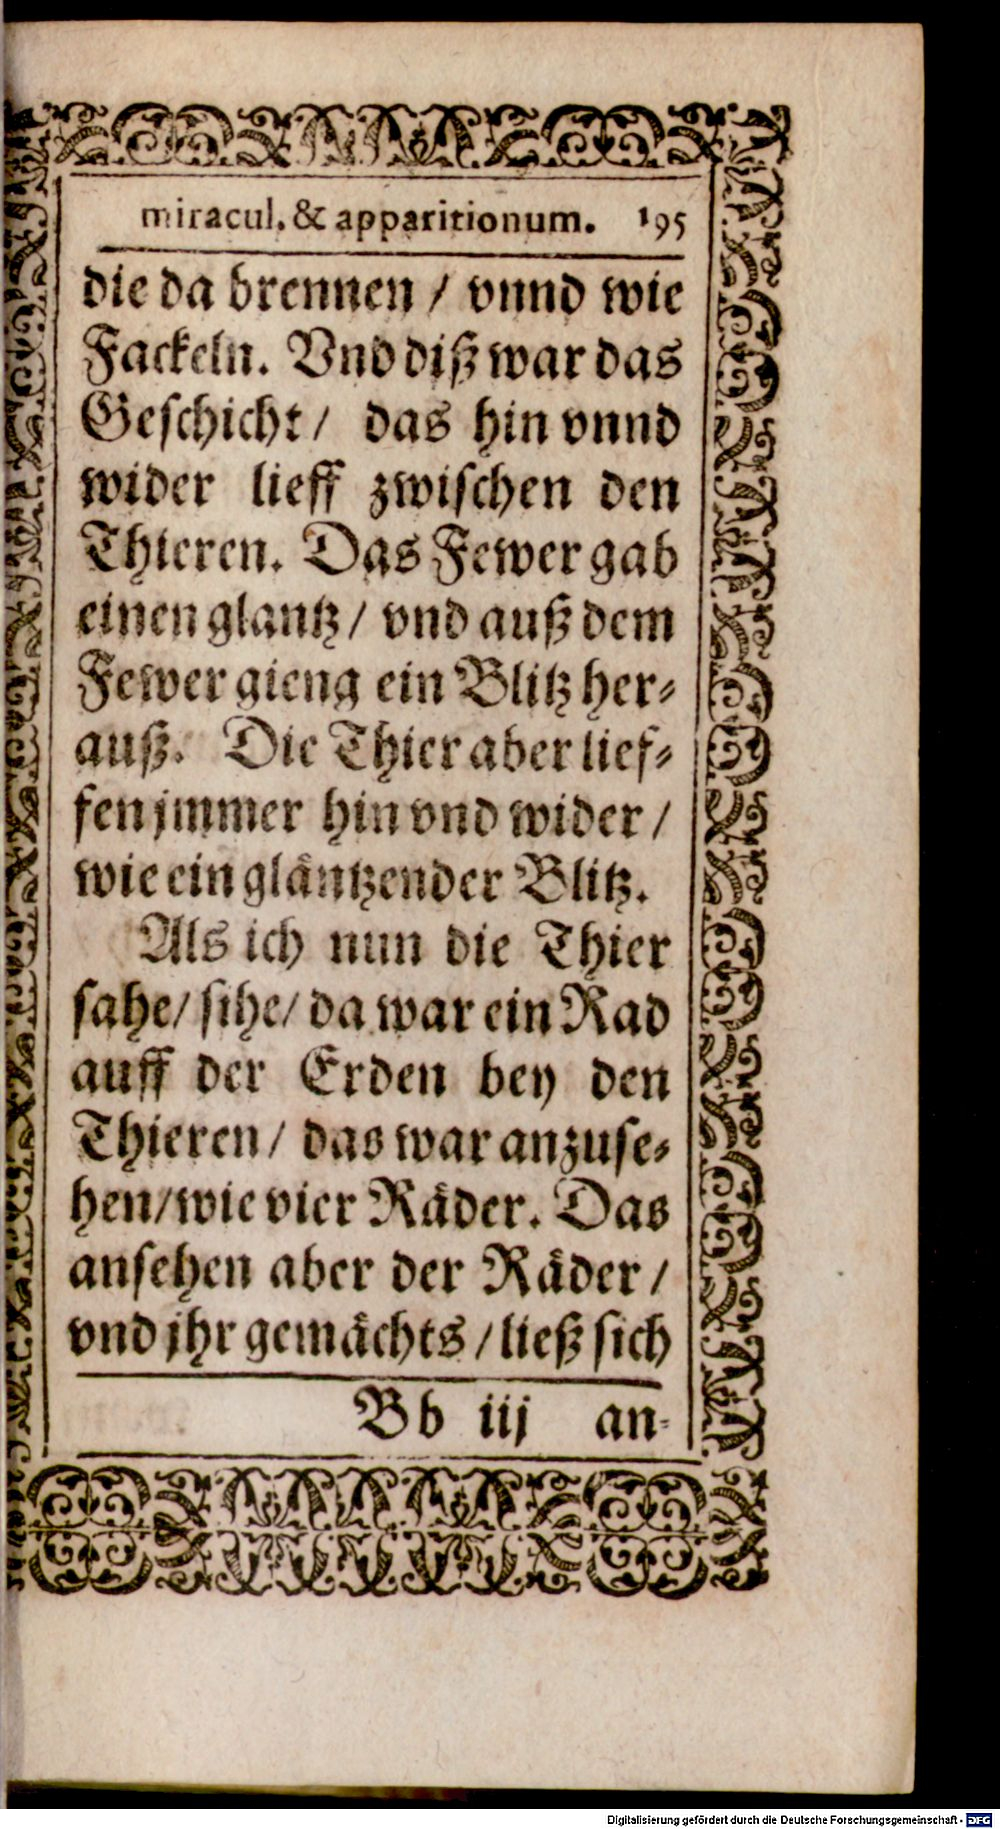 miracul. & apparitionum. 195
die da brennen / vnnd wie
Fackeln. Vnd diß war das
Geschicht / das hin vnnd
wider lieff zwischen den
Thieren. Das Fewer gab
einen glantz / vnd auß dem
Fewer gieng ein Blitz her-
auß. Die Thier aber lief-
fen jmmer hin vnd wider /
wie ein gläntzender Blitz.
Als ich nun die Thier
sahe / sihe / da war ein Rad
auff der Erden bey den
Thieren / das war anzuse-
hen / wie vier Räder. Das
ansehen aber der Räder /
vnd jhr gemächts / ließ sich
Bb iij an-
Digitalisierung gefördert durch die Deutsche Forschungsgemeinschaft - DFG